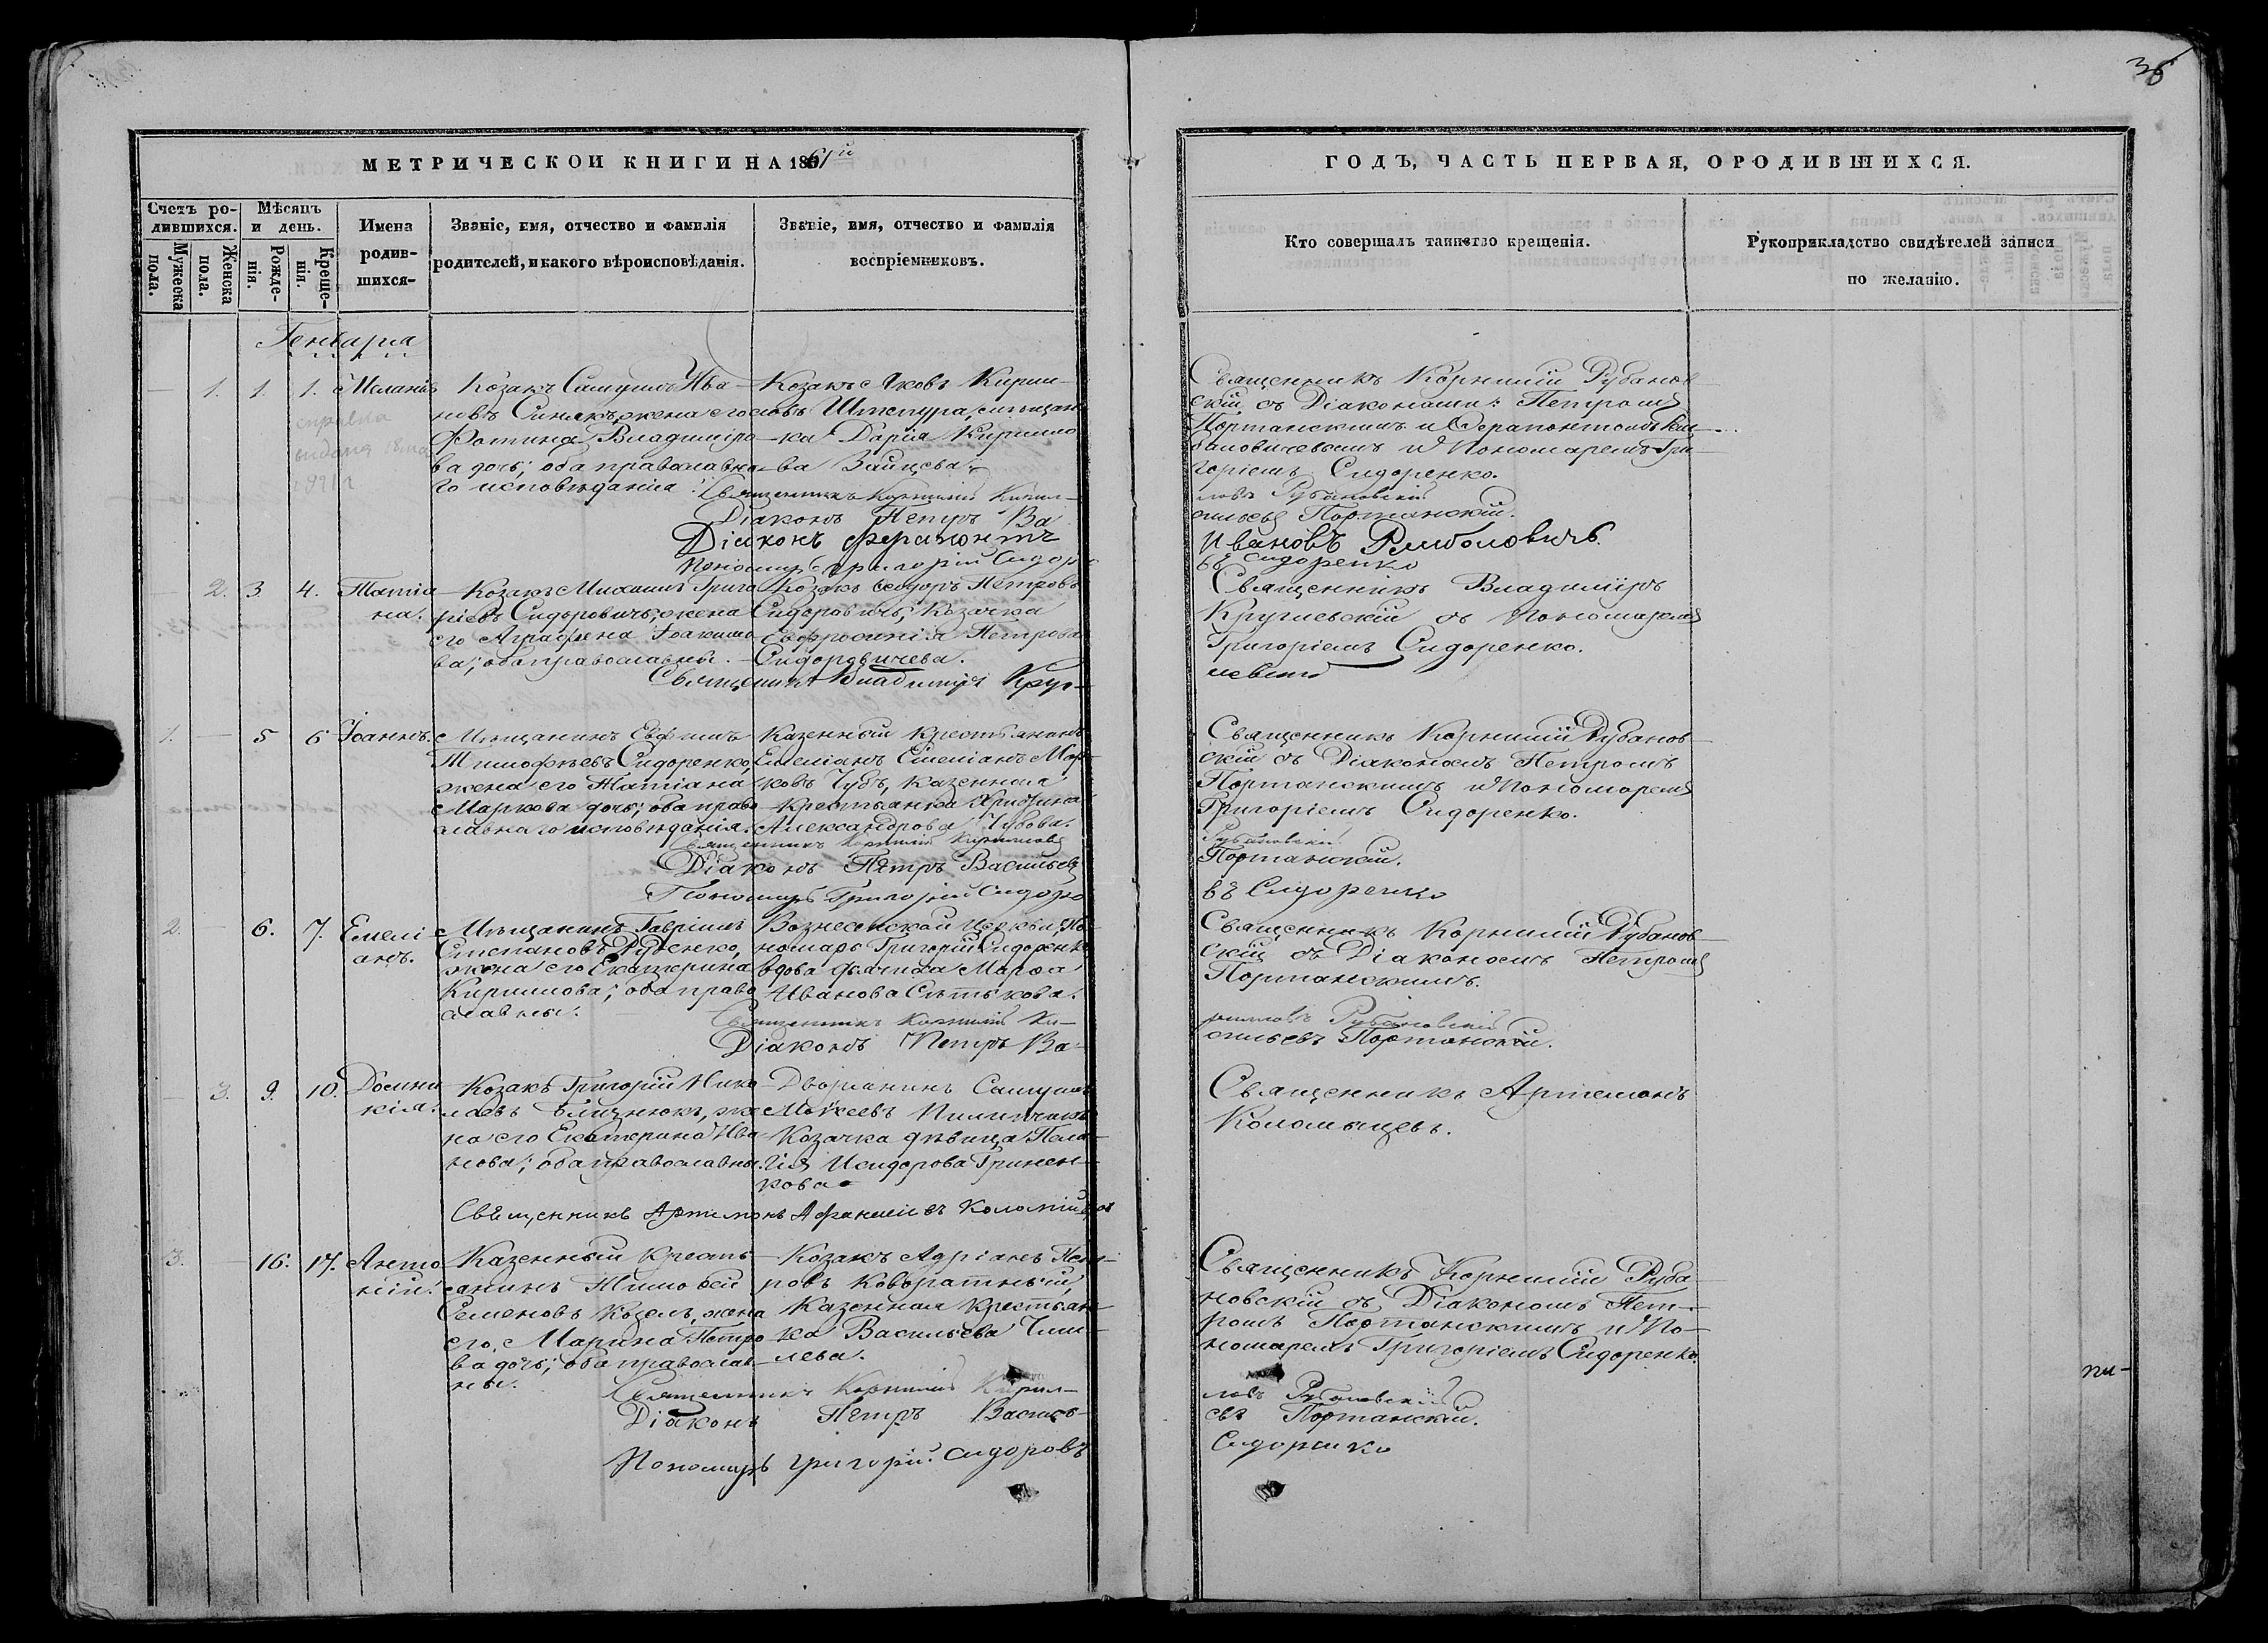 35
МЕТРИЧЕСКОИ КНИГИ НА 1861й
ГОДЪ, ЧАСТЬ ПЕРВАЯ, ОРОДИВШИХСЯ.
Счетъ родившихся.
Мужеска пола.
Женска пола.
Мѣсяцъ и день.
Рожденія.
Крещенія.
Имена родившихся-
Званіе, имя, отчество и фамилія
родителей, и какого вѣроисповѣданія.
Званіе, имя, отчество и фамилія
воспріемниковъ.
Кто совершалъ таинство крещенія.
Рукоприкладство свидѣтелей записи
по желанію.
Генваря
1. 1. 1. Меланія
справка
выдана
Козакъ Самуилъ Ива-
новъ Синякъ, жена его
Фотина Владиміро-
ва дочь; оба православна-
го исповѣданія.
Козакъ Яковъ Кирил-
ловъ Штепура, мѣщан-
ка Дарія Кирилло-
ва Зайцева.
Священникъ Корнилій Рубанов-
скій съ Діаконами: Петромъ
Портанскимъ и Ферапонтомъ
и Пономаремъ Гри-
горіемъ Сидоренко.
Священникъ Корнилій Кирил-
ловъ Рубановскій
Діаконъ Петръ Ва-
сильевъ Портанскій.
Діаконъ Ферапонтъ
Ивановъ
Пономарь Григорій Сидоро-
въ Сидоренко
2. 3 4. Татіа-
на.
Козакъ Михаилъ Григо-
ріевъ Сидоровичъ, жена
его Аграфена Іоакимо-
ва; оба православны.
Козакъ Ѳеодоръ Петровъ
Сидоровичъ, Козачка
Евфросинія Петрова
Сидоровичева.
Священникъ Владиміръ
Круглевскій съ Пономаремъ
Григоріемъ Сидоренко.
Священникъ Владиміръ Круг-
левскій
1. 5 6 Іоаннъ.
Мѣщанинъ Евфимъ
Тимофѣевъ Сидоренко,
жена его Татіана
Маркова дочь; оба право-
славнаго исповѣданія.
Казенный крестьянинъ
Емеліанъ Емеліанъ Мар-
ковъ Чубъ, казенная
крестьянка Христина
Александрова Чубова.
Священникъ Корнилій Рубанов-
скій съ Діакономъ Петромъ
Портанскимъ и Пономаремъ
Григоріемъ Сидоренко.
Священникъ Корнилій Кирилловъ
Рубановскій
Діаконъ Петръ Васильевъ
Портанскій.
Пономарь Григорій Сидоро-
въ Сидоренко
2. 6. 7. Емелі-
анъ.
Мѣщанинъ Гавріилъ
Степановъ Руденко,
жена его Екатерина
Кириллова; оба право-
славны.
Вознесенской Церкви, По-
номарь Григорій Сидоренко,
вдова дьячиха Марѳа
Иванова Сѣтькова.
Священникъ Корнилій Рубанов-
скій съ Діакономъ Петромъ
Портанскимъ.
Священникъ Корнилій Ки-
рилловъ Рубановскій
Діаконъ Петръ Ва-
сильевъ Портанскій.
3. 9. 10. Домни-
кія.
Козакъ Григорій Нико-
лаевъ Близнюкъ, же-
на его Екатерина Ива-
нова; оба православны.
Дворянинъ Самуилъ
Моисеевъ
Козачка дѣвица Пела-
гія Исидорова Гринен-
кова.
Священникъ Артемонъ
Коломыцевъ.
Священникъ Артемонъ
3. 16. 17. Анто-
ній.
Казенный кресть-
янинъ Тимоѳей
Семеновъ Козелъ, жена
его, Марина Петро-
ва дочь; оба православ-
ны.
Козакъ Адріанъ Пет-
ровъ Коворатный,
Казенная крестьян-
ка Васильева
Священникъ Корнилій Руба-
новскій съ Діакономъ Пет-
ромъ Портанскимъ и По-
номаремъ Григоріемъ Сидоренко.
Священникъ Корнилій Кирил-
ловъ Рубановскій
Діаконъ Петръ Василь-
евъ Портанскій.
Пономарь Григорій Сидоровъ
Сидоренко